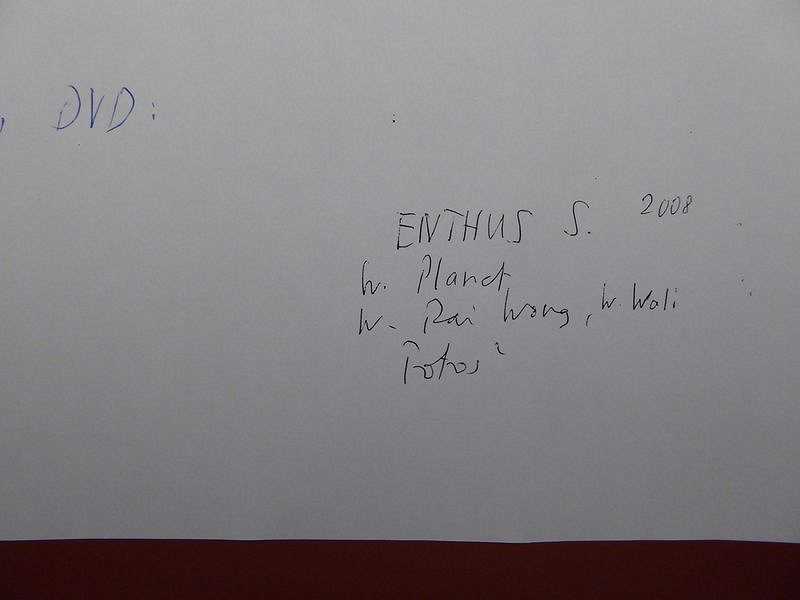 , DVD:
ENTHUS S. 2008
W. Planet
W. Rai Wong, W. Wali
Fotos